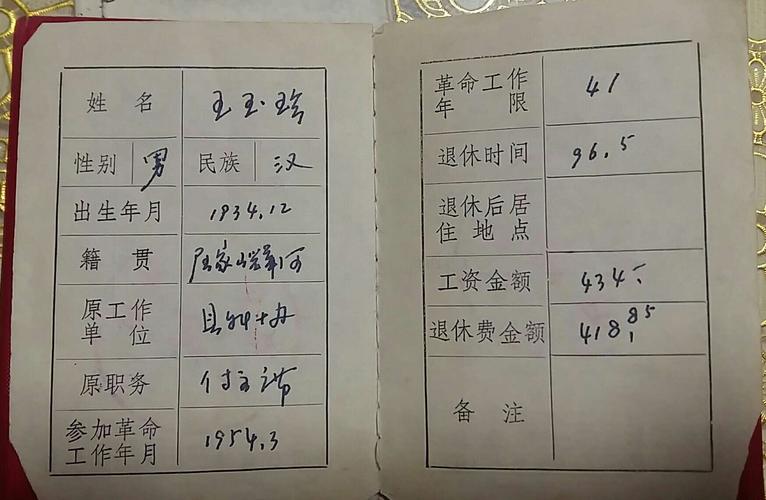 姓 名 王玉珍
性别 男 民族 汉
出生年月 1934.12
籍 贯
原工作
单 位
原职务 付主席
参加革命
工作年月 1954.3
革命工作
年 限 41
退休时间 96.5
退休后居
住 地 点
工资金额 434.
退休费金额 418.85
备 注